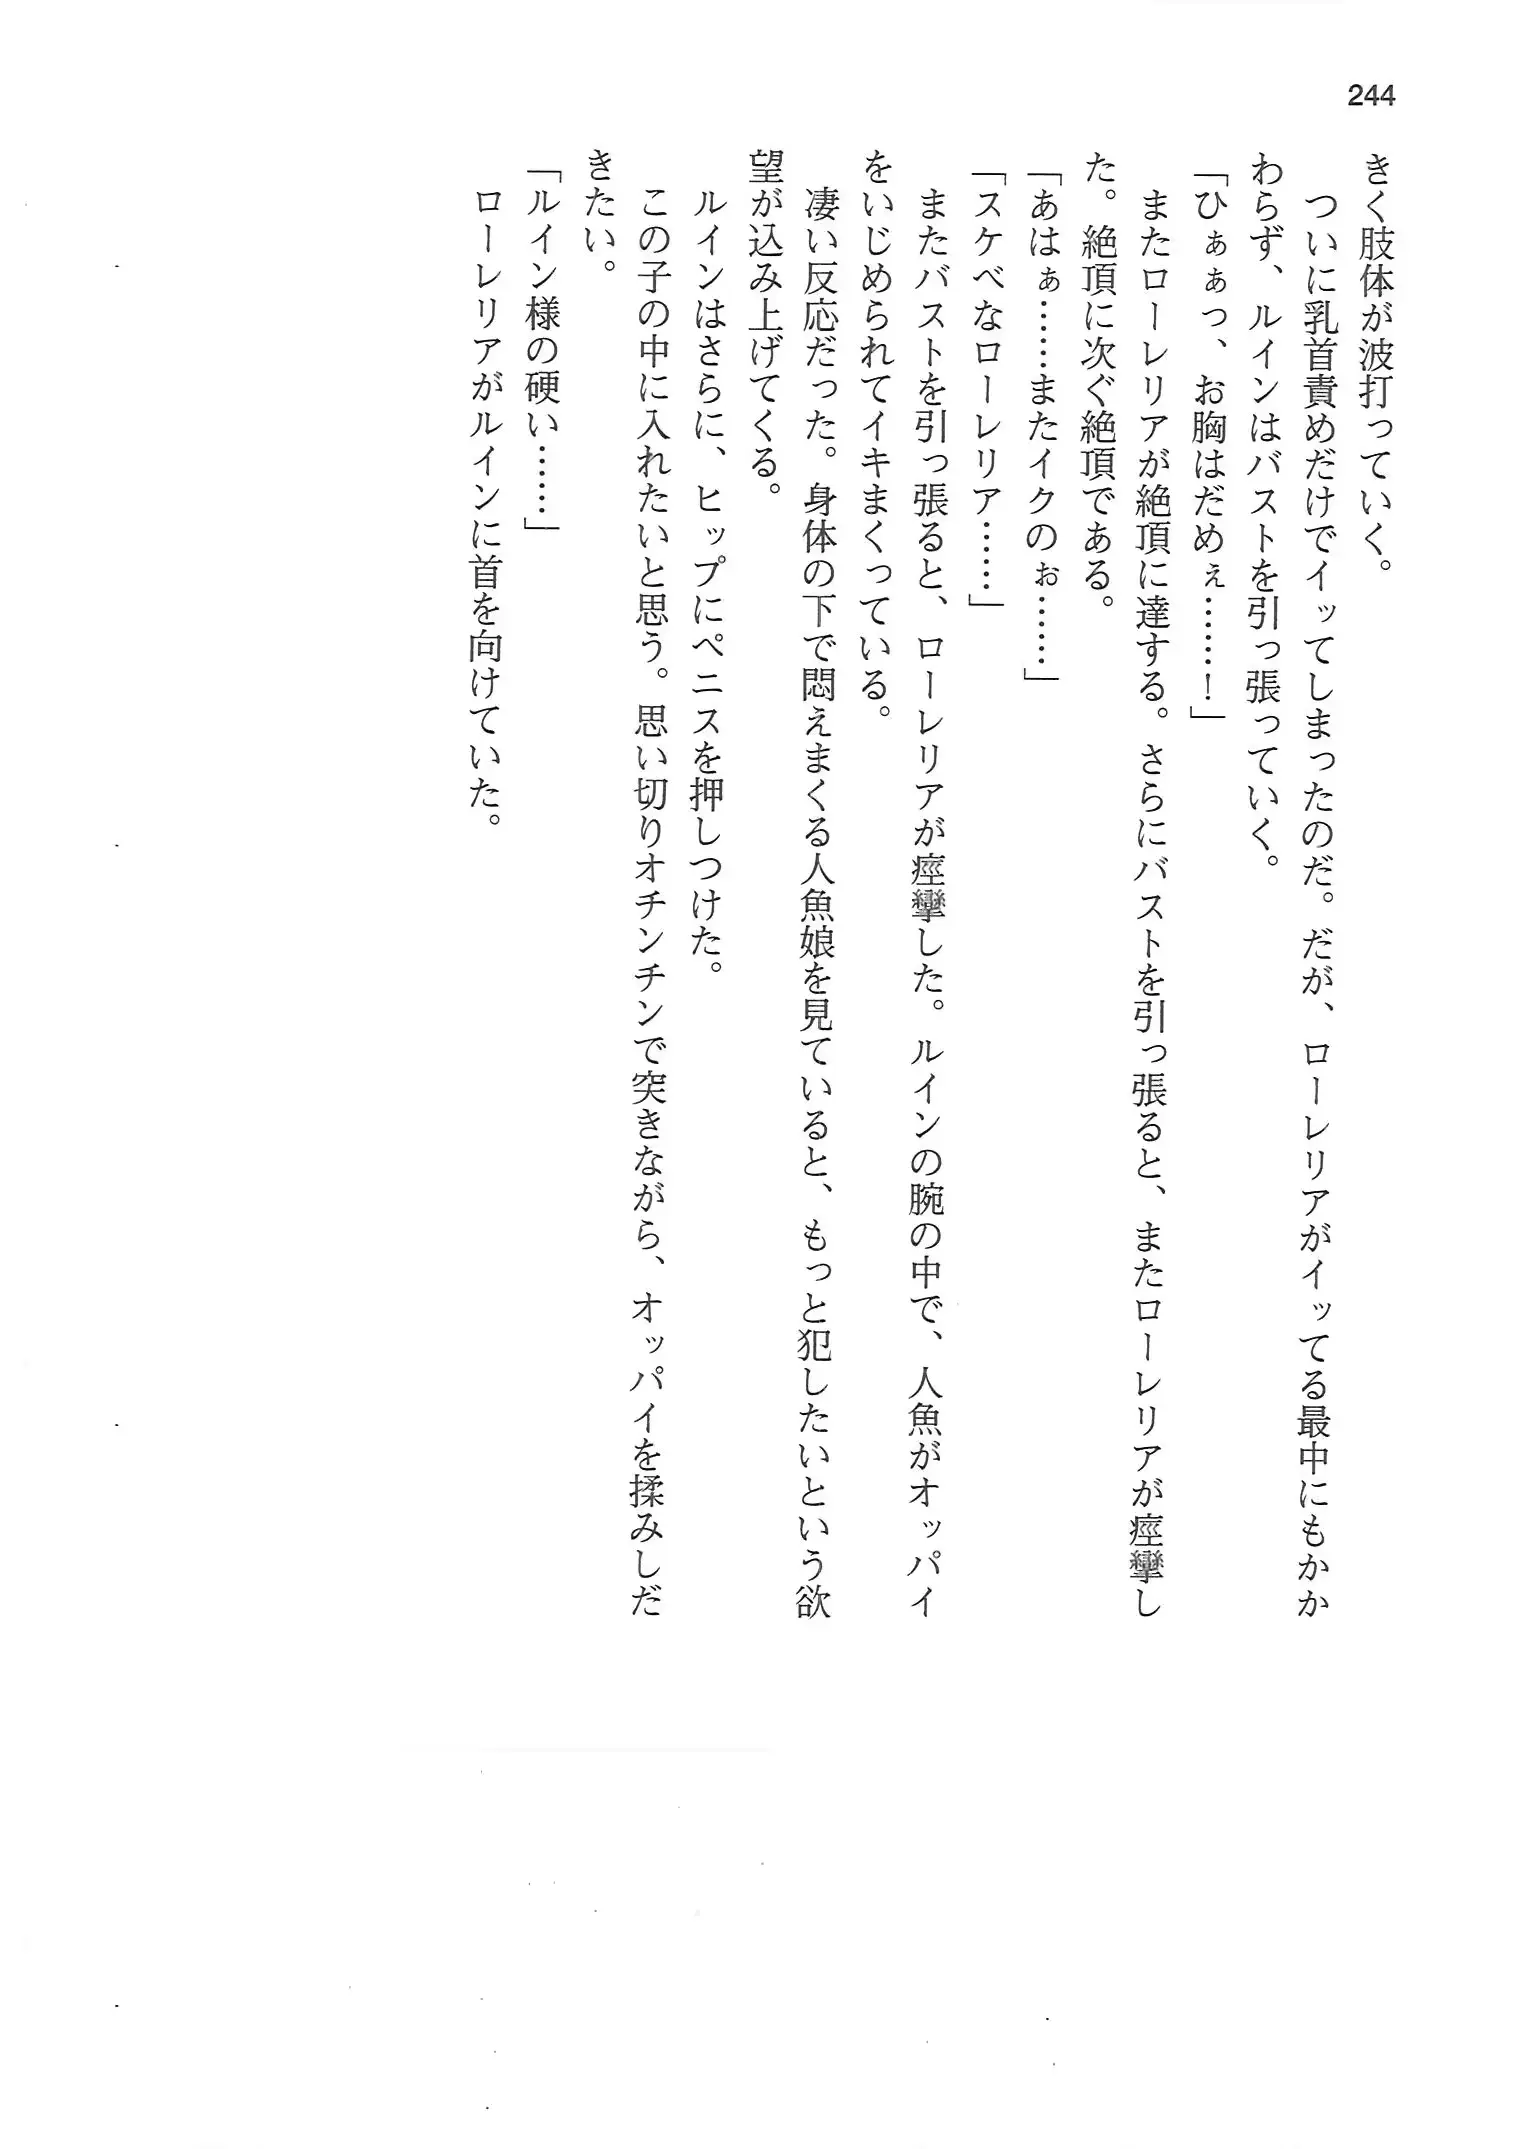 244
きく肢体が波打っていく。
ついに乳首責めだけでイッてしまったのだ。だが、ローレリアがイッてる最中にもかか
わらず、ルインはバストを引っ張っていく。
「ひぁぁっ、お胸はだめぇ……！」
またローレリアが絶頂に達する。さらにバストを引っ張ると、またローレリアが痙攣し
た。絶頂に次ぐ絶頂である。
「あはぁ……またイクのぉ……」
「スケベなローレリア……」
またバストを引っ張ると、ローレリアが痙攣した。ルインの腕の中で、人魚がオッパイ
をいじめられてイキまくっている。
凄い反応だった。身体の下で悶えまくる人魚娘を見ていると、もっと犯したいという欲
望が込み上げてくる。
ルインはさらに、ヒップにペニスを押しつけた。
この子の中に入れたいと思う。思い切りオチンチンで突きながら、オッパイを揉みしだ
きたい。
「ルイン様の硬い……」
ローレリアがルインに首を向けていた。